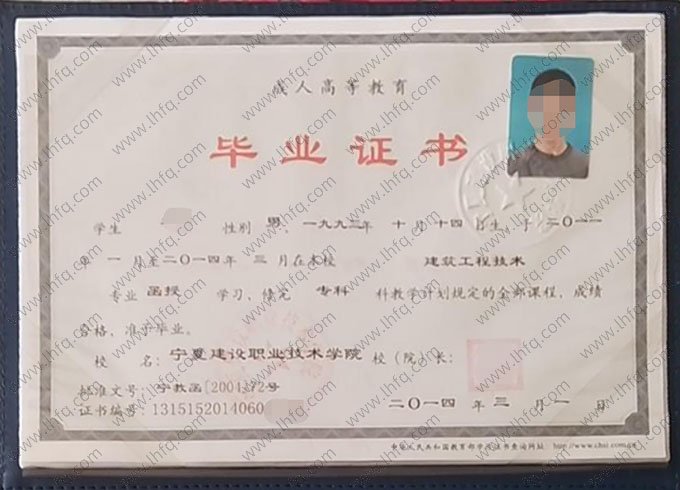 成人高等教育
毕业证书
学生 性别 男，一九九三年 十 月 十四 日生，于 二〇一一
年 一 月至二〇一四年 三 月在本校 建筑工程技术
专业 函授 学习，修完 专科 科教学计划规定的全部课程，成绩
合格，准予毕业。
校 名：宁夏建设职业技术学院 校（院）长：
批准文号：宁教函[2004]72号
证书编号：1315152014060
二〇一四 年 三 月 一 日
中华人民共和国教育部学历证书查询网址：http://www.chsi.com.cn
www.lhfq.com